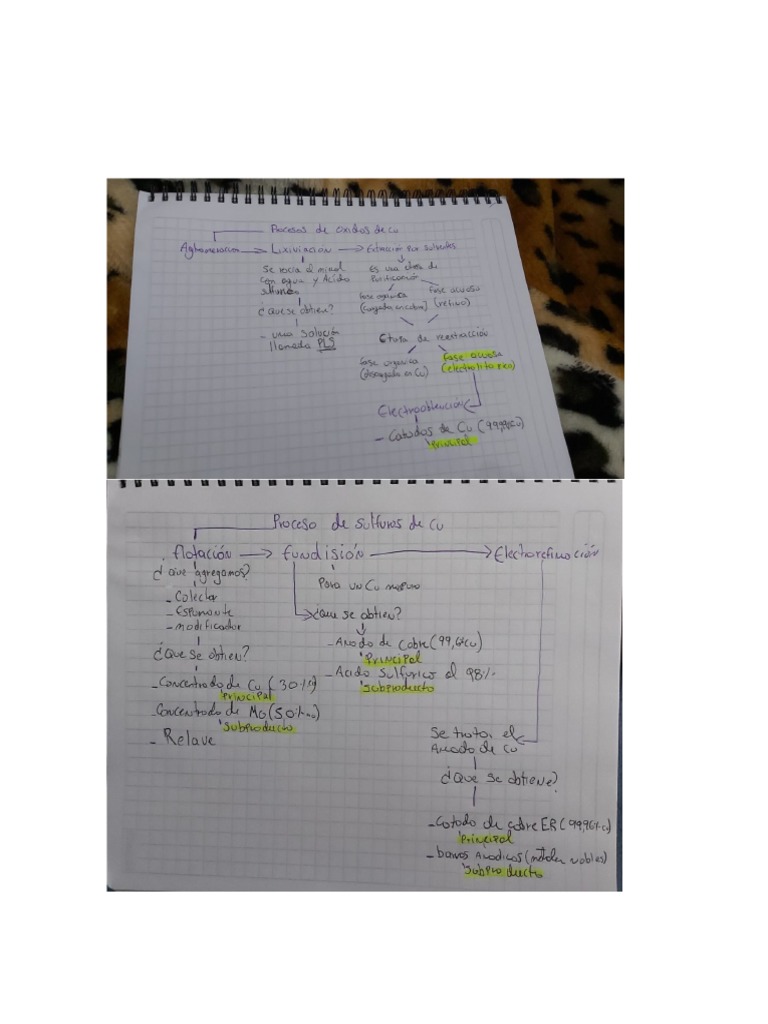 Procesos de oxidos de cu
Aglomeración → Lixiviación → Extracción por solventes
Se rocía el mineral
con agua y Acido
sulfurico
¿Que se obtien?
- una solución
llamada PLS
Es una etapa de
Purificación
fase organica
(cargada en cobre)
fase acuosa
(refino)
Etapa de reextracción
fase organica
(descargada en Cu)
fase acuosa
(electrolito rico)
Electroobtención
- Catodos de Cu (99,99%Cu)
Principal
Proceso de sulfuros de Cu
flotación → fundisión → Electorefinación
¿que agregamos?
- Colector
- Espumante
- modificador
¿Que se obtien?
- Concentrado de Cu (30%
Principal
- Concentrado de Mo (50%mo)
Subproducto
- Relave
Para un Cu
¿que se obtien?
- Anodo de cobre (99,6%Cu)
Principal
- Acido Sulfurico al 98%
Subproducto
Se trata el
Anodo de Cu
¿Que se obtiene?
- Catodo de cobre ER (99,96%Cu)
Principal
- barros Anodicos (metales nobles)
Subproducto